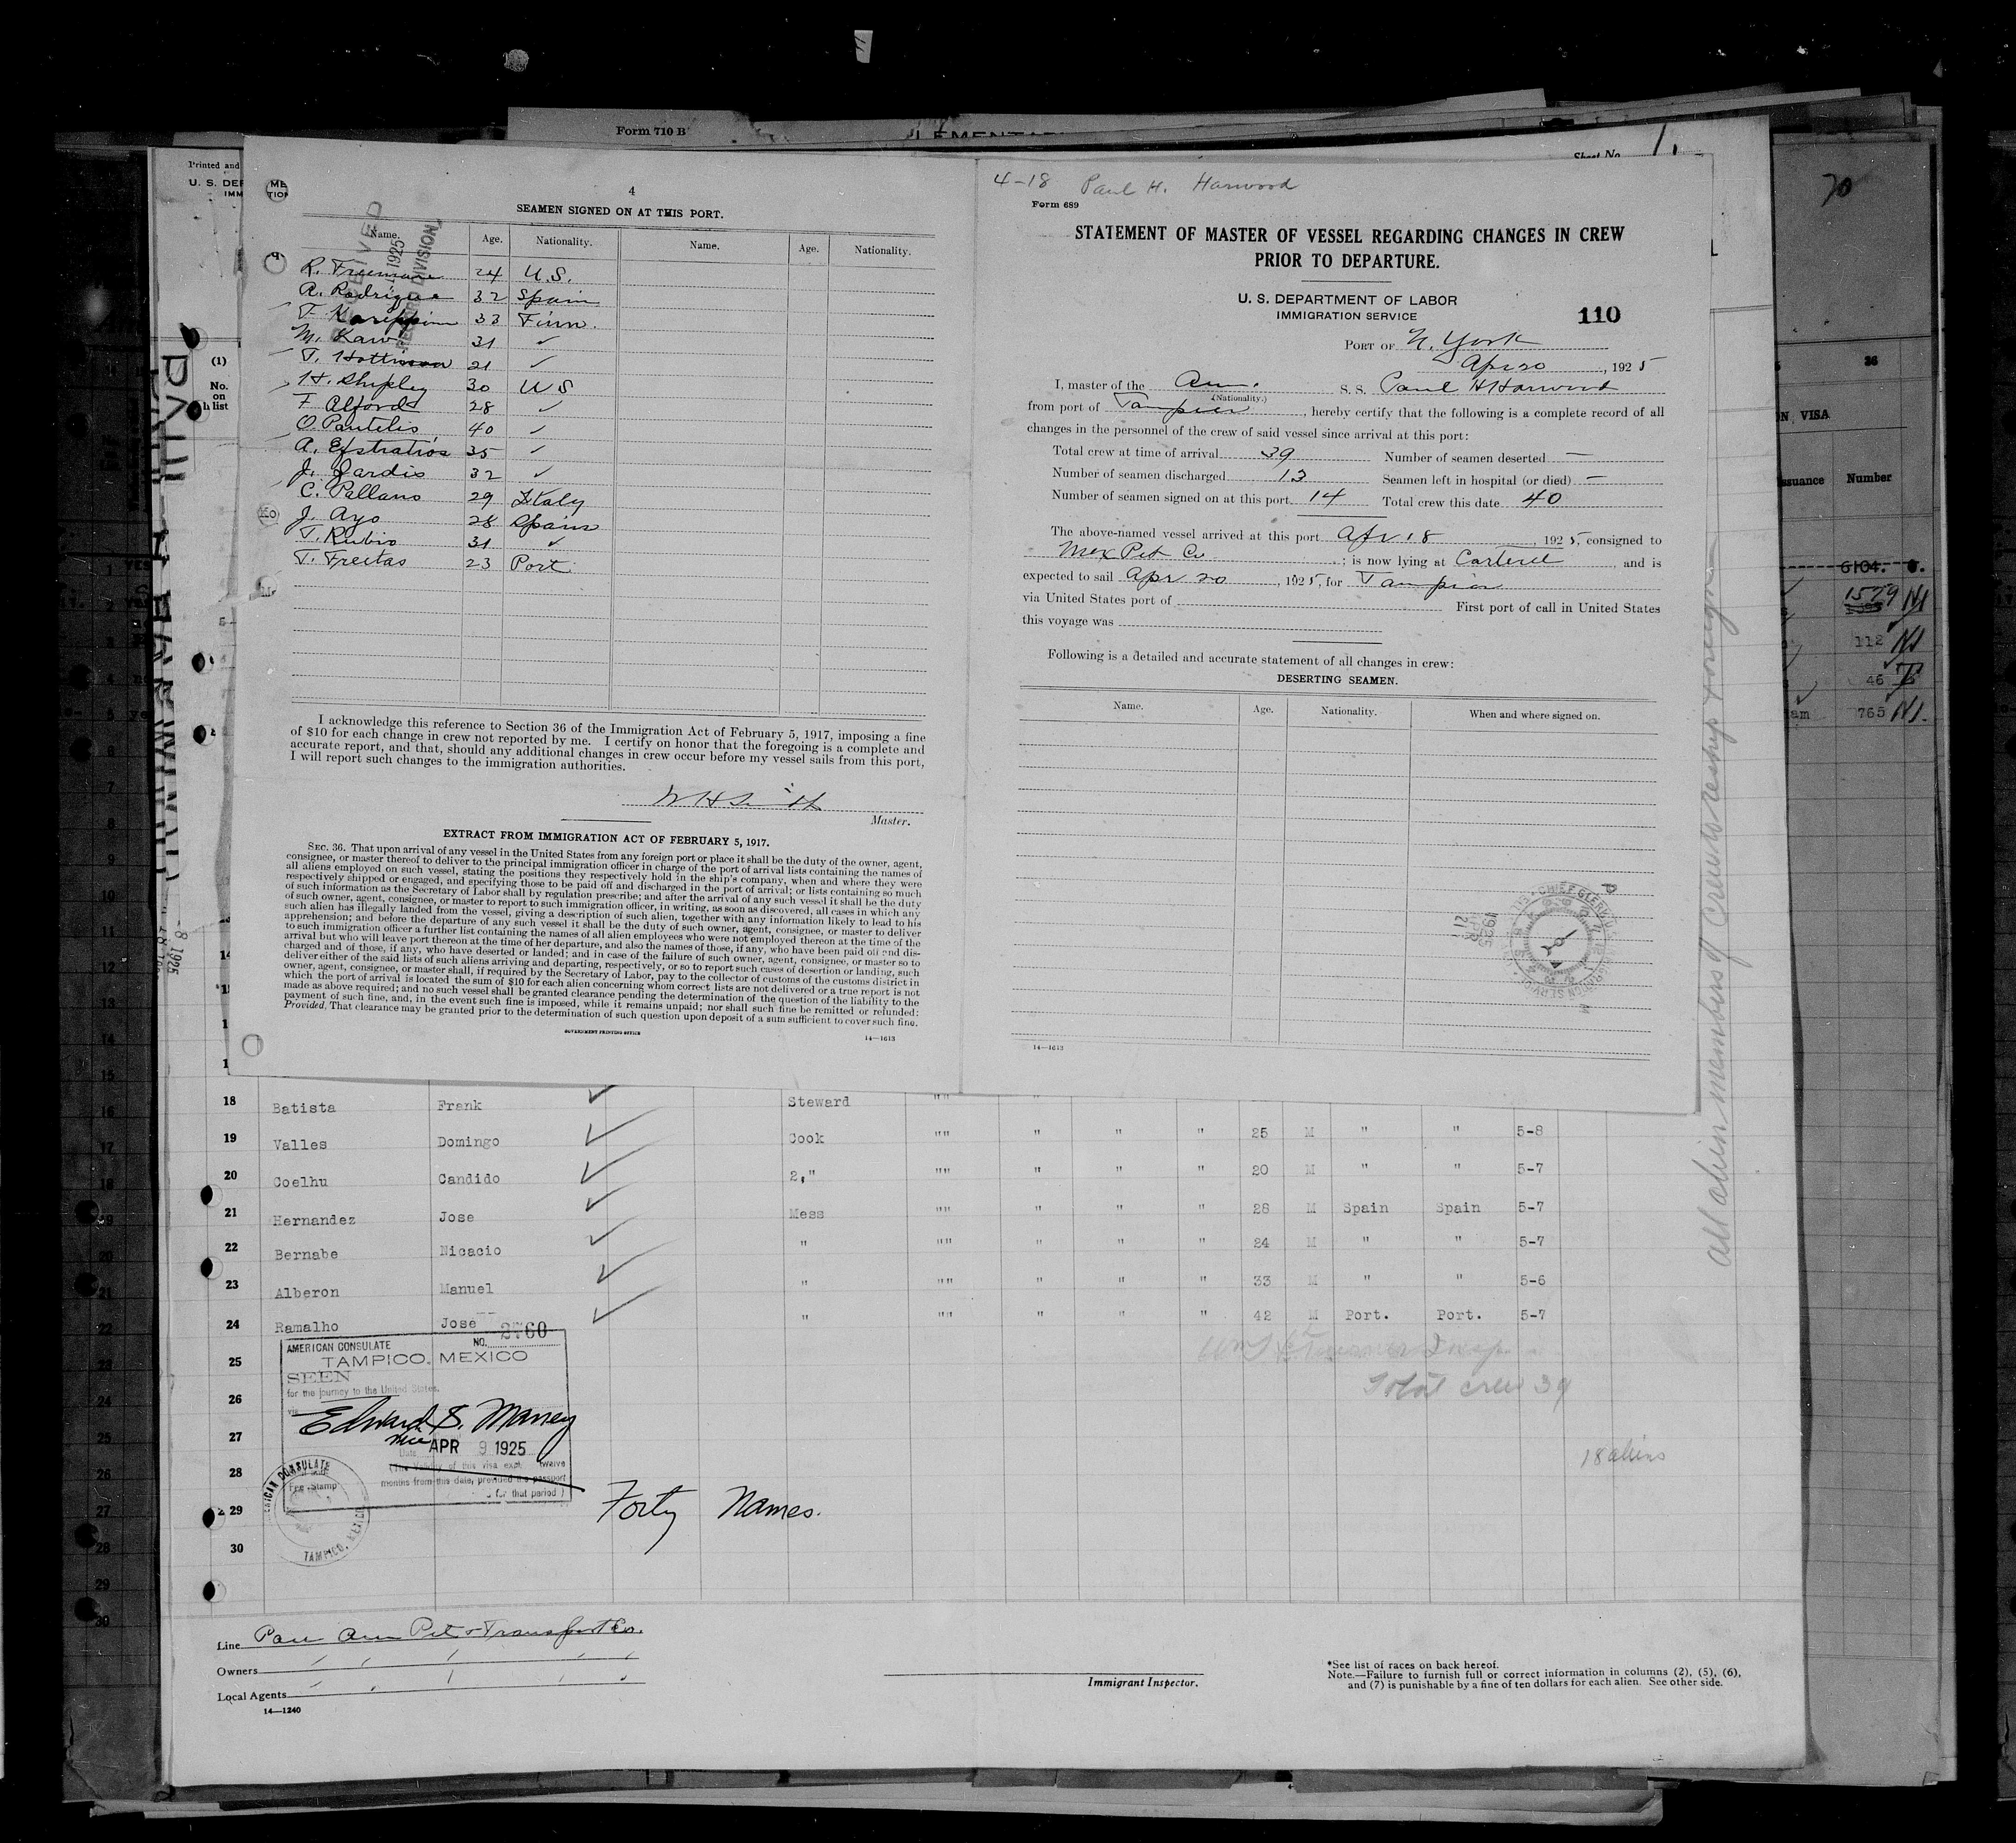 Form 710 B
Sheet No. 1.
Printed and
U. S. DEP
IMM
4
SEAMEN SIGNED ON AT THIS PORT.
Name. Age. Nationality. Name. Age. Nationality.
R. Freeman 24 U.S.
A. Rodrigue 32 Spain
33 Finn.
M. 31 ✓
T. 21 ✓
H. Shipley 30 U S
F. Alford 28 ✓
O. Pantelis 40 ✓
A. Efstratios 35 ✓
J. Jardis 32 ✓
C. Pallano 29 Italy
J. Ayo 28 Spain
T. Rubio 31 ✓
T. Freitas 23 Port.
RECEIVED
1925
RECORD DIVISION
I acknowledge this reference to Section 36 of the Immigration Act of February 5, 1917, imposing a fine
of $10 for each change in crew not reported by me. I certify on honor that the foregoing is a complete and
accurate report, and that, should any additional changes in crew occur before my vessel sails from this port,
I will report such changes to the immigration authorities.
W H Smith
Master.
EXTRACT FROM IMMIGRATION ACT OF FEBRUARY 5, 1917.
SEC. 36. That upon arrival of any vessel in the United States from any foreign port or place it shall be the duty of the owner, agent,
consignee, or master thereof to deliver to the principal immigration officer in charge of the port of arrival lists containing the names of
all aliens employed on such vessel, stating the positions they respectively hold in the ship's company, when and where they were
respectively shipped or engaged, and specifying those to be paid off and discharged in the port of arrival; or lists containing so much
of such information as the Secretary of Labor shall by regulation prescribe; and after the arrival of any such vessel it shall be the duty
of such owner, agent, consignee, or master to report to such immigration officer, in writing, as soon as discovered, all cases in which any
such alien has illegally landed from the vessel, giving a description of such alien, together with any information likely to lead to his
apprehension; and before the departure of any such vessel it shall be the duty of such owner, agent, consignee, or master to deliver
to such immigration officer a further list containing the names of all alien employees who were not employed thereon at the time of the
arrival but who will leave port thereon at the time of her departure, and also the names of those, if any, who have been paid off and dis-
charged and of those, if any, who have deserted or landed; and in case of the failure of such owner, agent, consignee, or master so to
deliver either of the said lists of such aliens arriving and departing, respectively, or so to report such cases of desertion or landing, such
owner, agent, consignee, or master shall, if required by the Secretary of Labor, pay to the collector of customs of the customs district in
which the port of arrival is located the sum of $10 for each alien concerning whom correct lists are not delivered or a true report is not
made as above required; and no such vessel shall be granted clearance pending the determination of the question of the liability to the
payment of such fine, and, in the event such fine is imposed, while it remains unpaid; nor shall such fine be remitted or refunded:
Provided, That clearance may be granted prior to the determination of such question upon deposit of a sum sufficient to cover such fine.
GOVERNMENT PRINTING OFFICE
14—1613
4-18 Paul H. Harwood
Form 689
STATEMENT OF MASTER OF VESSEL REGARDING CHANGES IN CREW
PRIOR TO DEPARTURE.
U. S. DEPARTMENT OF LABOR
IMMIGRATION SERVICE
110
PORT OF N. York
Apr 20, 1925
I, master of the Am. S. S. Paul H Harwood
(Nationality.)
from port of Tampico, hereby certify that the following is a complete record of all
changes in the personnel of the crew of said vessel since arrival at this port:
Total crew at time of arrival 39 Number of seamen deserted —
Number of seamen discharged 13 Seamen left in hospital (or died) —
Number of seamen signed on at this port 14 Total crew this date 40
The above-named vessel arrived at this port Apr 18, 1925, consigned to
Mex Pet Co; is now lying at Carteret, and is
expected to sail Apr 20, 1925, for Tampico
via United States port of First port of call in United States
this voyage was
Following is a detailed and accurate statement of all changes in crew:
DESERTING SEAMEN.
Name. Age. Nationality. When and where signed on.
14—1613
all alien members of crew to reship foreign
70
36
ON VISA
Issuance Number
6104.
1579
112
46
765
18 Batista Frank Steward "" "
19 Valles Domingo Cook "" " " " 25 M " " 5-8
20 Coelhu Candido 2," "" " " " 20 M " " 5-7
21 Hernandez Jose Mess "" " " " 28 M Spain Spain 5-7
22 Bernabe Nicacio " "" " " " 24 M " " 5-7
23 Alberon Manuel " "" " " " 33 M " " 5-6
24 Ramalho Jose " "" " " " 42 M Port. Port. 5-7
25
26
27
28
29
30
AMERICAN CONSULATE NO. 2760
TAMPICO, MEXICO
SEEN
for the journey to the United States.
via
Edward S. Maney
Vice
Date APR 9 1925
(The validity of this visa expires twelve
months from this date, provided the passport
for that period)
AMERICAN CONSULATE
Fee Stamp
TAMPICO, MEXICO
Forty Names.
Total crew 39
18 aliens
Line Pan Am Pet & Transport Co.
Owners
Local Agents
14—1240
Immigrant Inspector.
*See list of races on back hereof.
Note.—Failure to furnish full or correct information in columns (2), (5), (6),
and (7) is punishable by a fine of ten dollars for each alien. See other side.